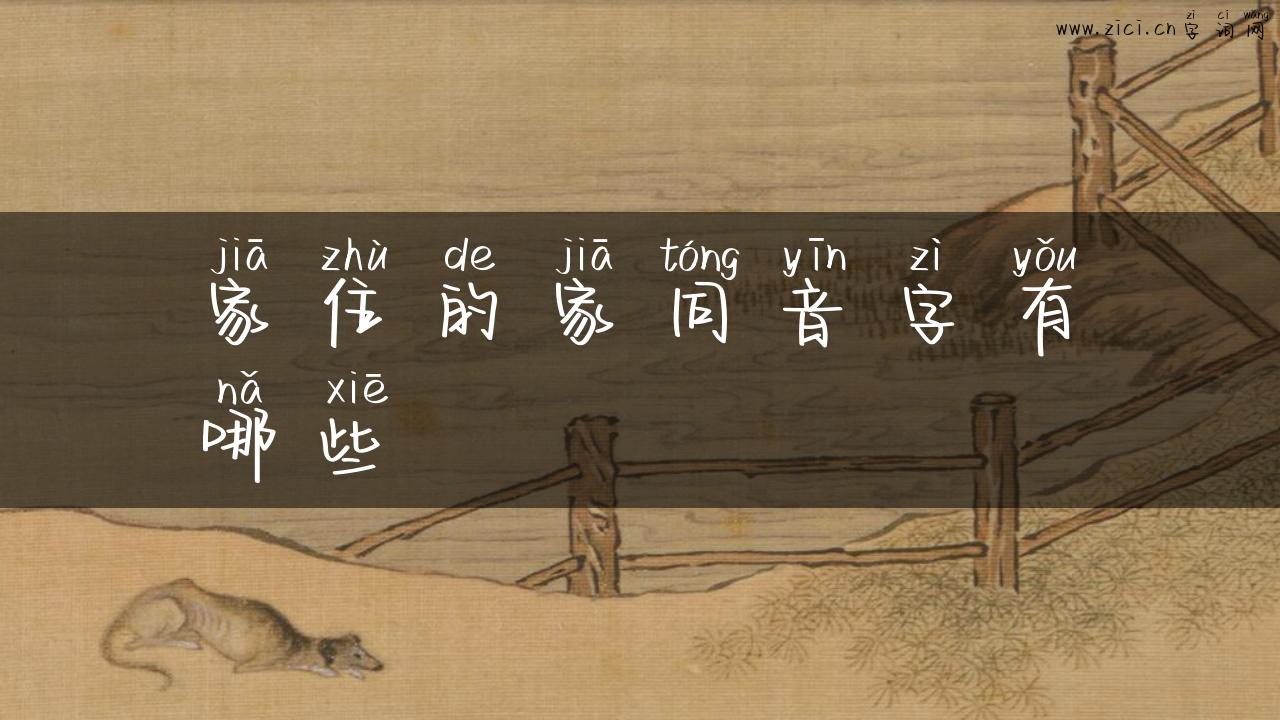 zì cí wǎng
www.zici.cn字词网
jiā zhù de jiā tóng yīn zì yǒu
家住的家同音字有
nǎ xiē
哪些